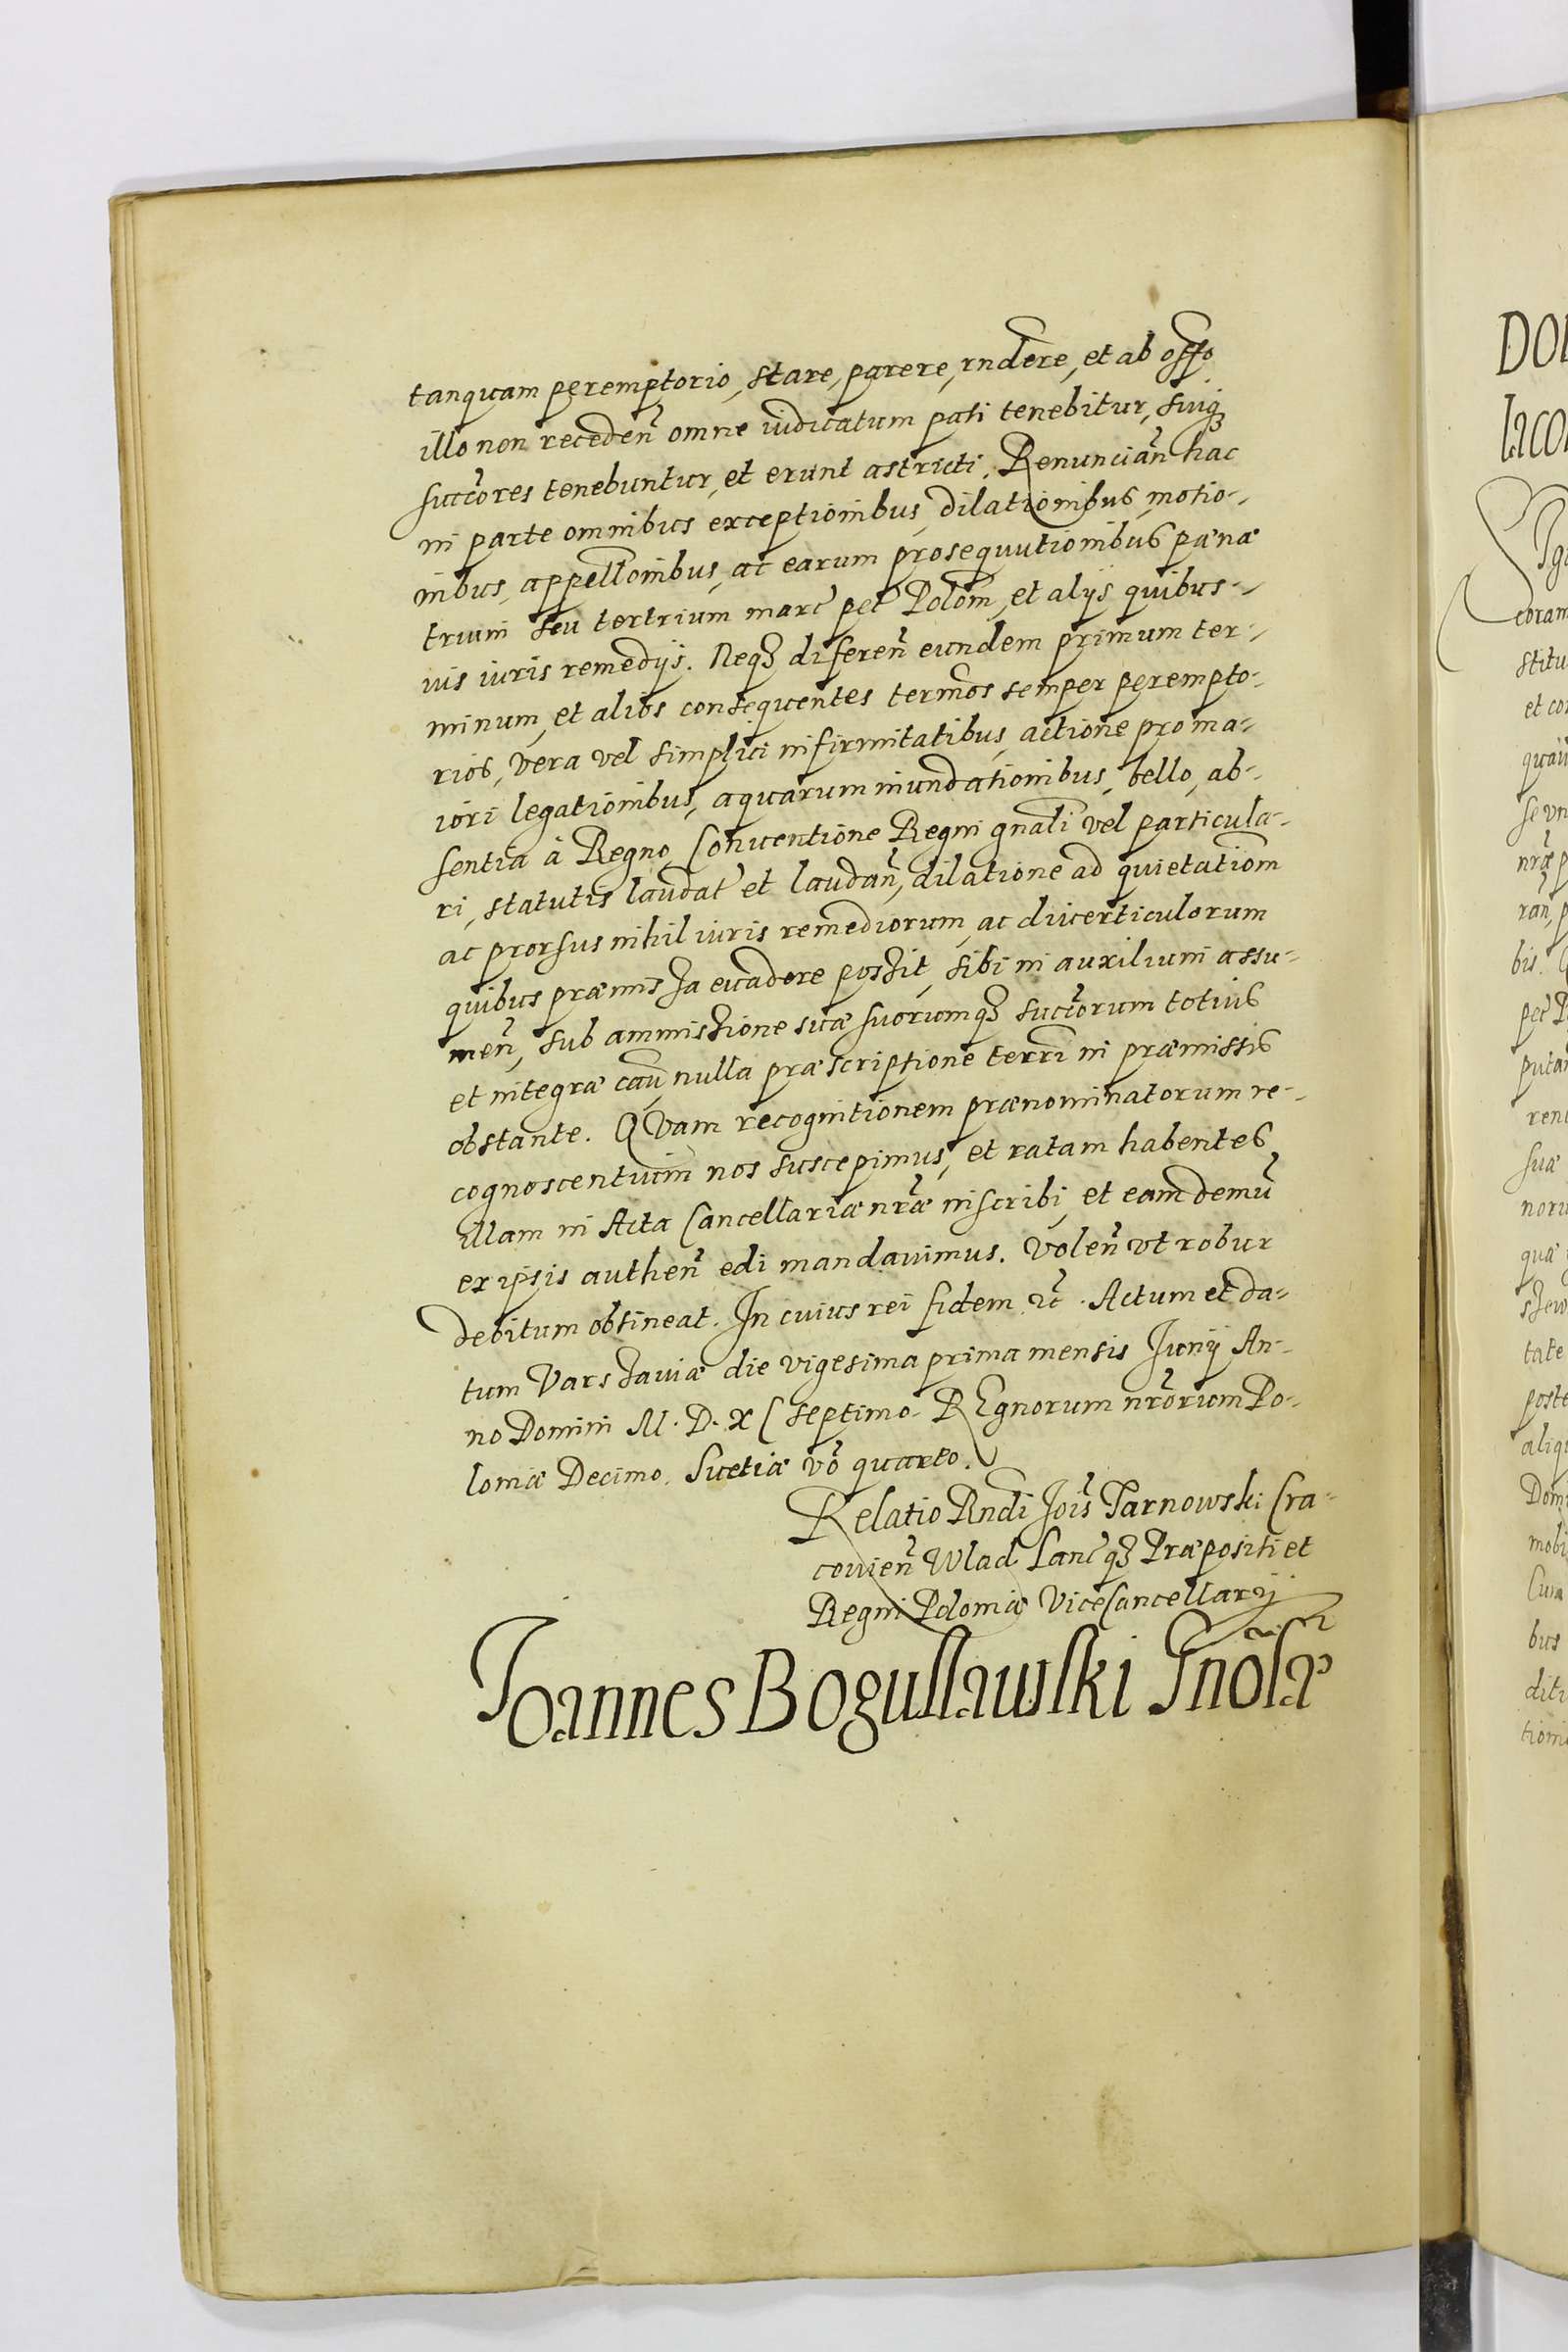 tanquam peremptorio, stare, parere, rndere, et ab offo
illo non receden̄ omne iudicatum pati tenebitur, suiq̢
succ̄ores tenebuntur, et erunt astricti. Renuncian̄ hac
in parte omnibus exceptionibus, dilationibus, motio-
nibus, appell̄onibus, ac earum prosequutionibus pænæ
trium seu tertrium marc̄ pec̄ Polon̄, et alijs quibus-
uis iuris remedijs. Neqʒ diferen̄ eundem primum ter-
minum, et alios consequentes term̄os semper perempto-
rios, vera vel simplici infirmitatibus, actione pro ma-
iori legationibus, aquarum inundationibus, bello, ab-
sentia à Regno, Conuentione Regni gn̄ali vel particula-
ri, statutis laudat̄ et laudan̄, dilatione ad quietatiom̄
ac prorsus nihil iuris remediorum, ac diuerticulorum
quibus præmissa euadere possit, sibi in auxilium assu-
men̄, sub ammissione suæ suorumqʒ succ̄orum totius
et integræ caū, nulla præscriptione terr̄i in præmissis
obstante. QVam recognitionem prænominatorum re-
cognoscentium nos suscepimus, et ratam habentes
illam in Acta Cancellariæ nr̄æ inscribi, et eam demū
ex ipsis authen̄ edi mandauimus. Volen̄ vt robur
debitum obtineat. In cuius rei fidem ꝛc̄. Actum et da-
tum Varssauiæ die vigesima prima mensis Junij An-
no Domini M. D. XC septimo. REgnorum nr̄orum Po-
loniæ Decimo. Suetiæ vō quarto.
Relatio Rndi Joīs Tarnowski Cra-
couien̄ Wlad Lanc̄qʒ Præpositi et
Regni Poloniæ ViceCancellarij
Joannes Boguslawski
DO
Iaco
coram
stitu
et co
quaii
se vn
nr̄æ p
ran̄, p
bis.
pec̄ P
puta
ren
suæ
noru
quæ
tate
poste
aliq
Dom
mobi
Cuia
bus
diti
tioni